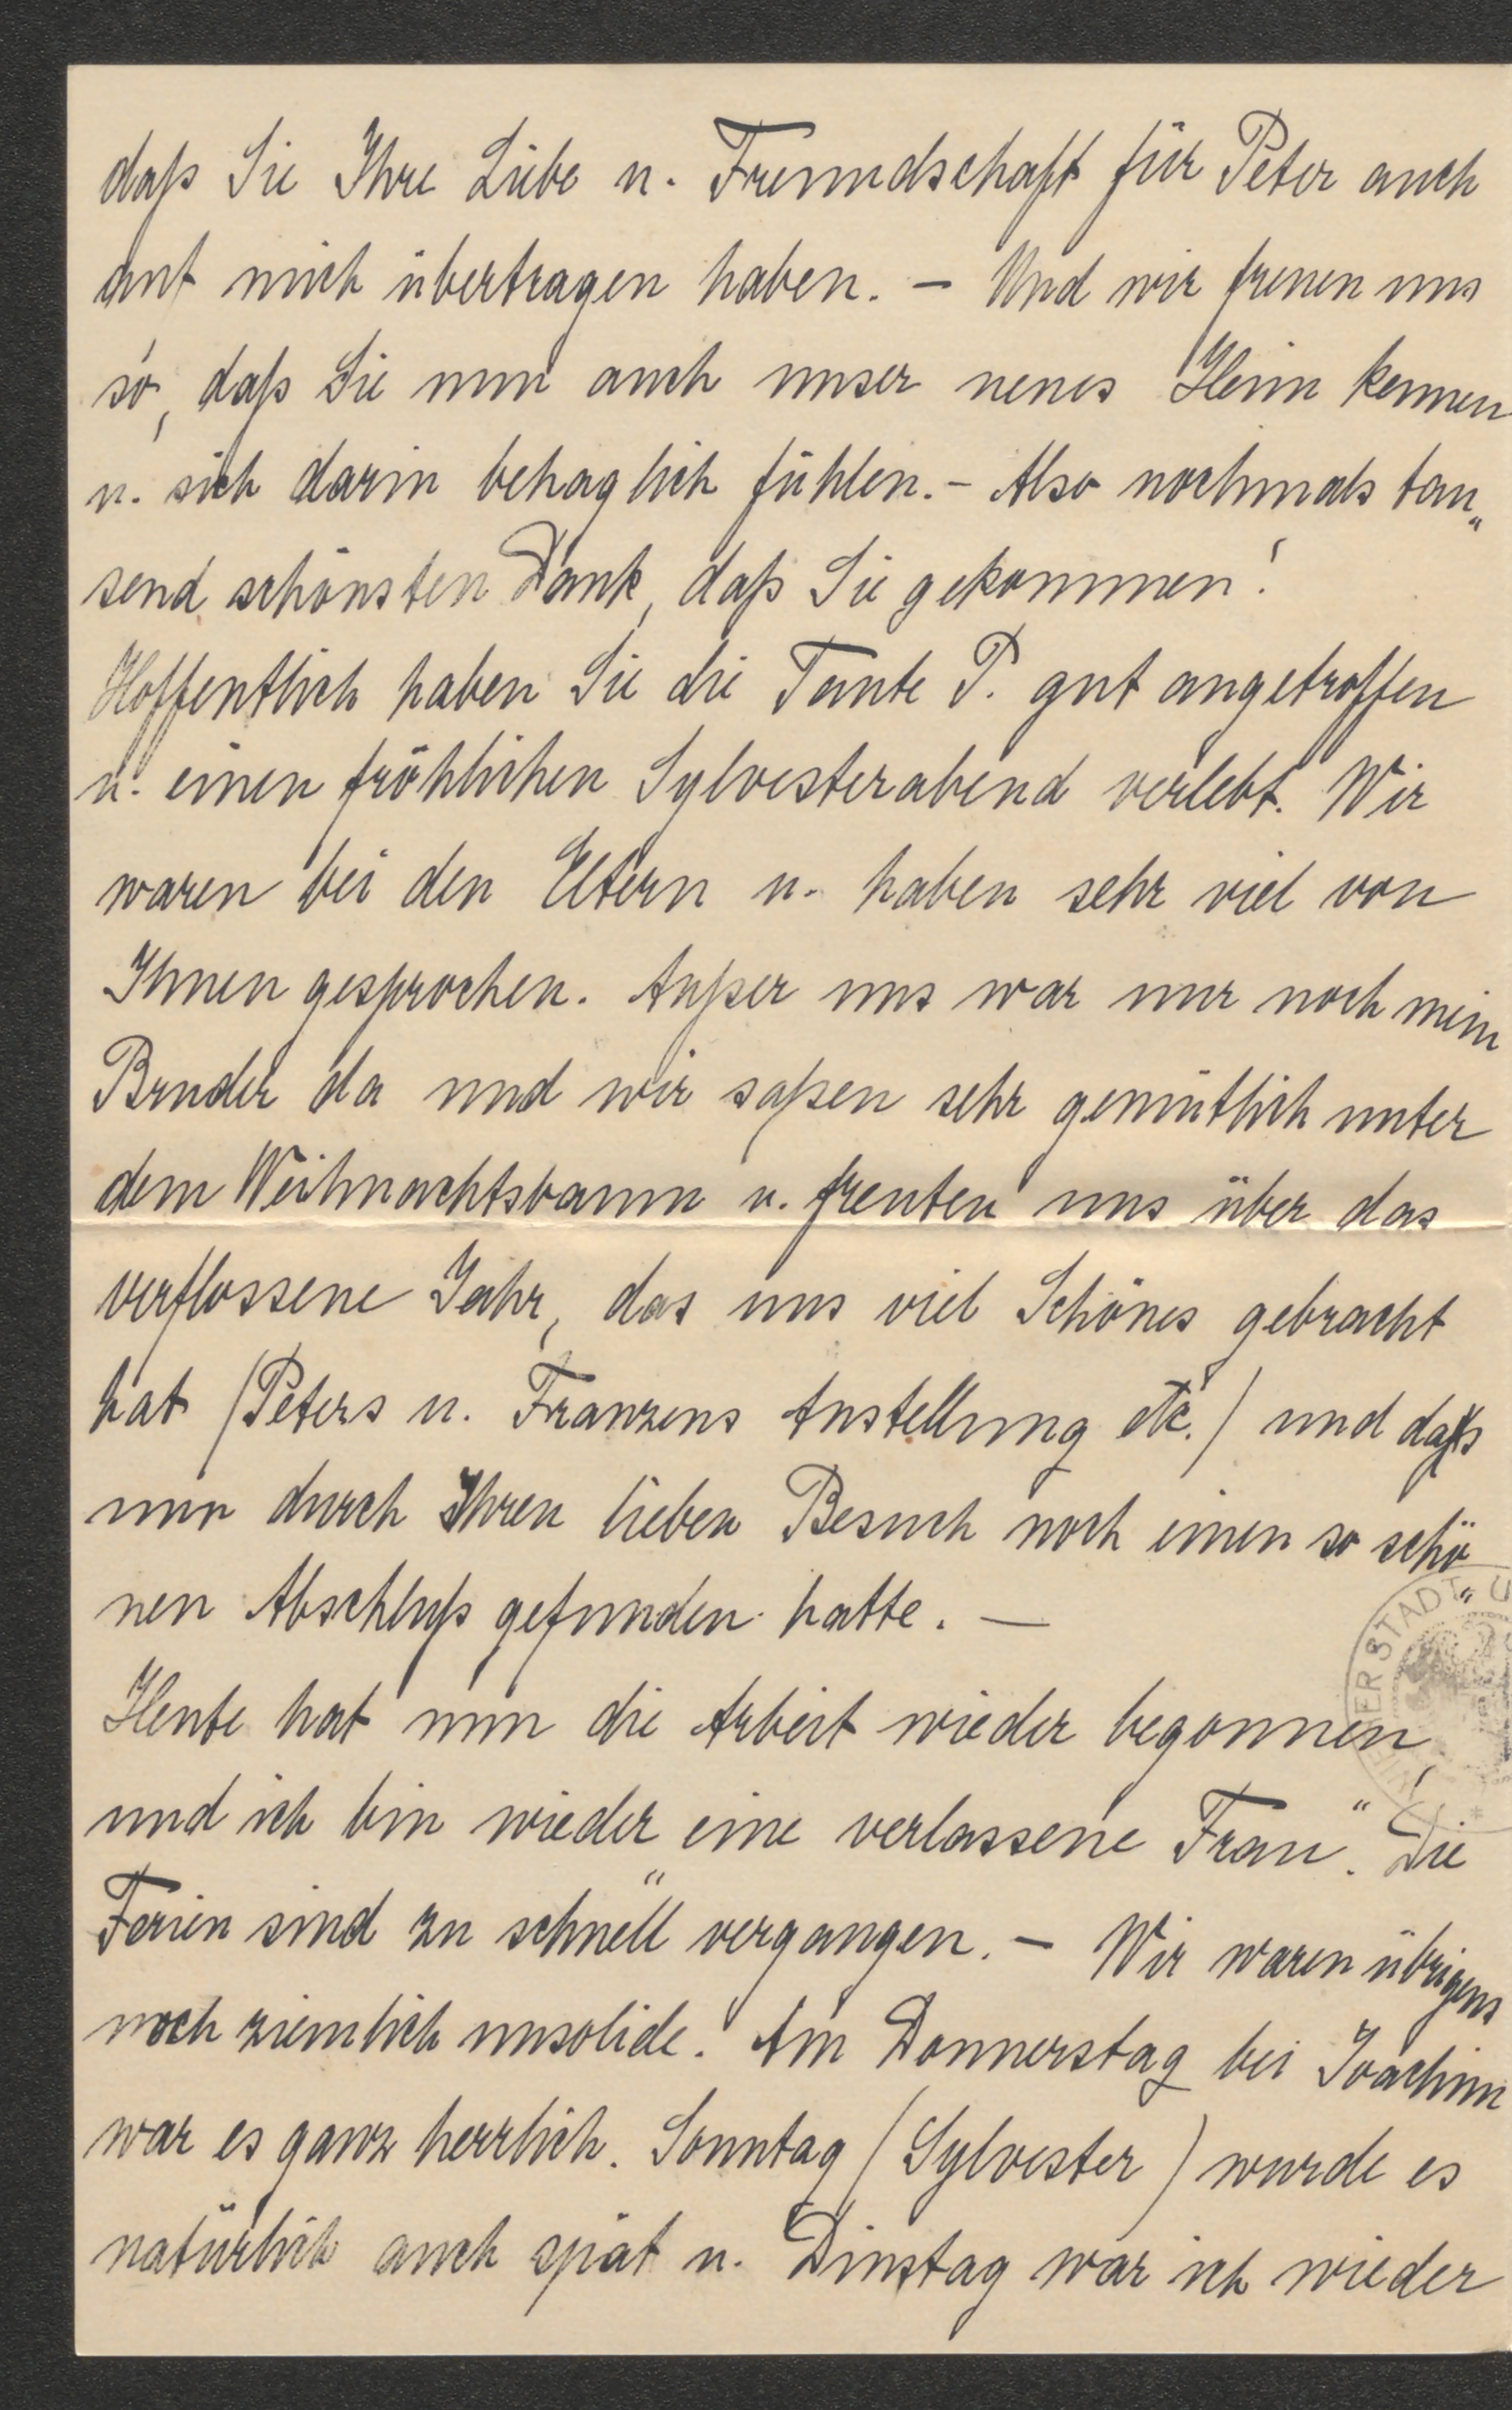 daß Sie Ihre Liebe u. Freundschaft für Peter auch
auf mich übertragen haben. – Und wir freuen uns
so, daß Sie nun auch unser neues Heim kennen
u. sich darin behaglich fühlen. – Also nochmals tau„
send schönsten Dank, daß Sie gekommen!
Hoffentlich haben Sie die Tante P. gut angetroffen
u. einen fröhlichen Sylvesterabend verlebt. Wir
waren bei den Eltern u. haben sehr viel von
Ihnen gesprochen. Außer uns war nur noch mein
Bruder da und wir saßen sehr gemütlich unter
dem Weihnachtsbaum u. freuten uns über das
verflossene Jahr, das uns viel Schönes gebracht
hat (Peters u. Franzens Anstellung etc.) und das
nun durch Ihren lieben Besuch noch einen so schö„
nen Abschluß gefunden hatte. —
Heute hat nun die Arbeit wieder begonnen,
und ich bin wieder eine „verlassene Frau“. Die
Ferien sind zu schnell vergangen. – Wir waren übrigens
noch ziemlich unsolide. Am Donnerstag bei Joachim
war es ganz herrlich. Sonntag (Sylvester) wurde es
natürlich auch spät u. Dinstag war ich wieder
WIENER STADT